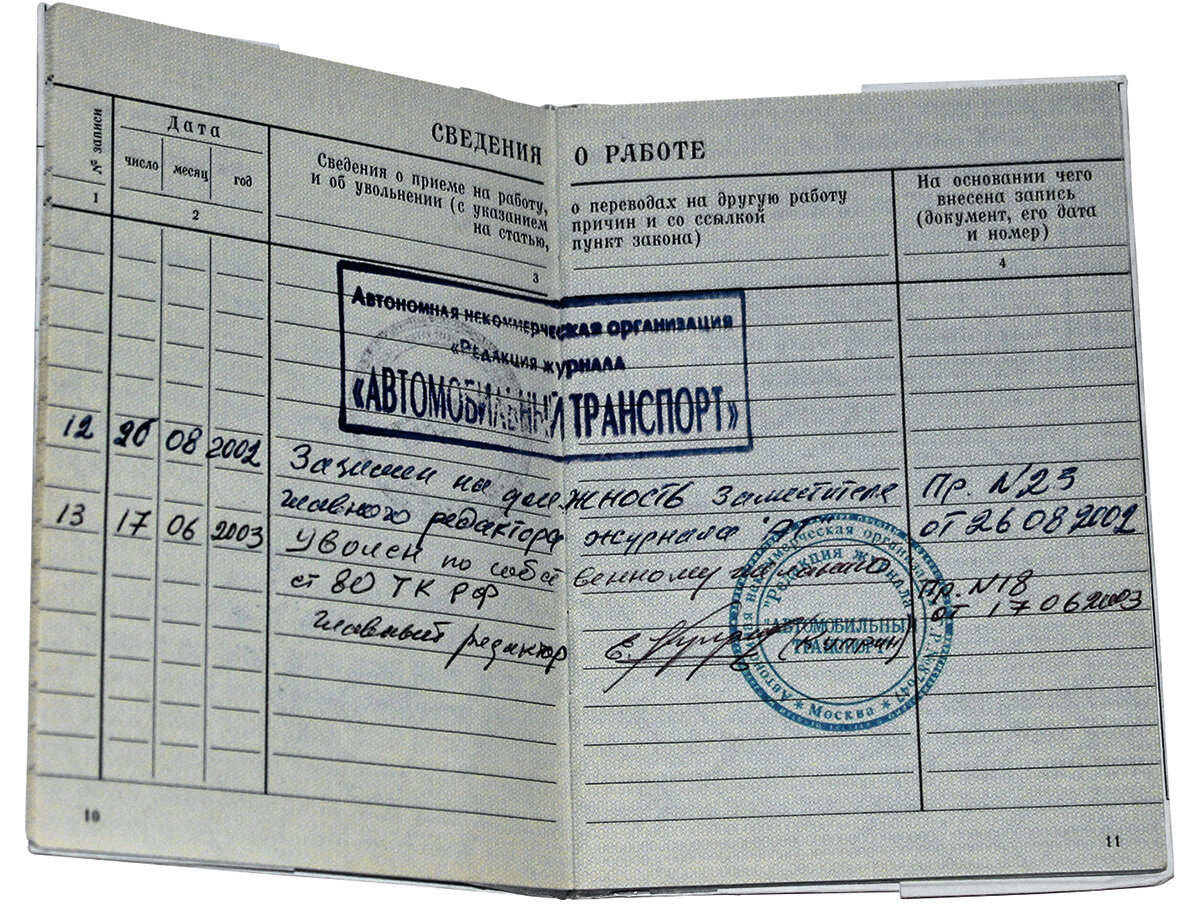 СВЕДЕНИЯ О РАБОТЕ
№ записи
Дата
число месяц год
Сведения о приеме на работу, о переводах на другую работу
и об увольнении (с указанием причин и со ссылкой
на статью, пункт закона)
На основании чего
внесена запись
(документ, его дата
и номер)
1 2 3 4
Автономная некоммерческая организация
«Редакция журнала
«АВТОМОБИЛЬНЫЙ ТРАНСПОРТ»
12 26 08 2002 Зачислен на должность заместителя Пр. N23
главного редактора журнала "АТ" от 26 08 2002
13 17 06 2003 Уволен по собственному желанию
ст 80 ТК РФ Пр. N18
от 17 06 2003
главный редактор
Автономная некоммерческая
"Редакция журнала
"АВТОМОБИЛЬНЫЙ
ТРАНСПОРТ"
* Москва *
10
11